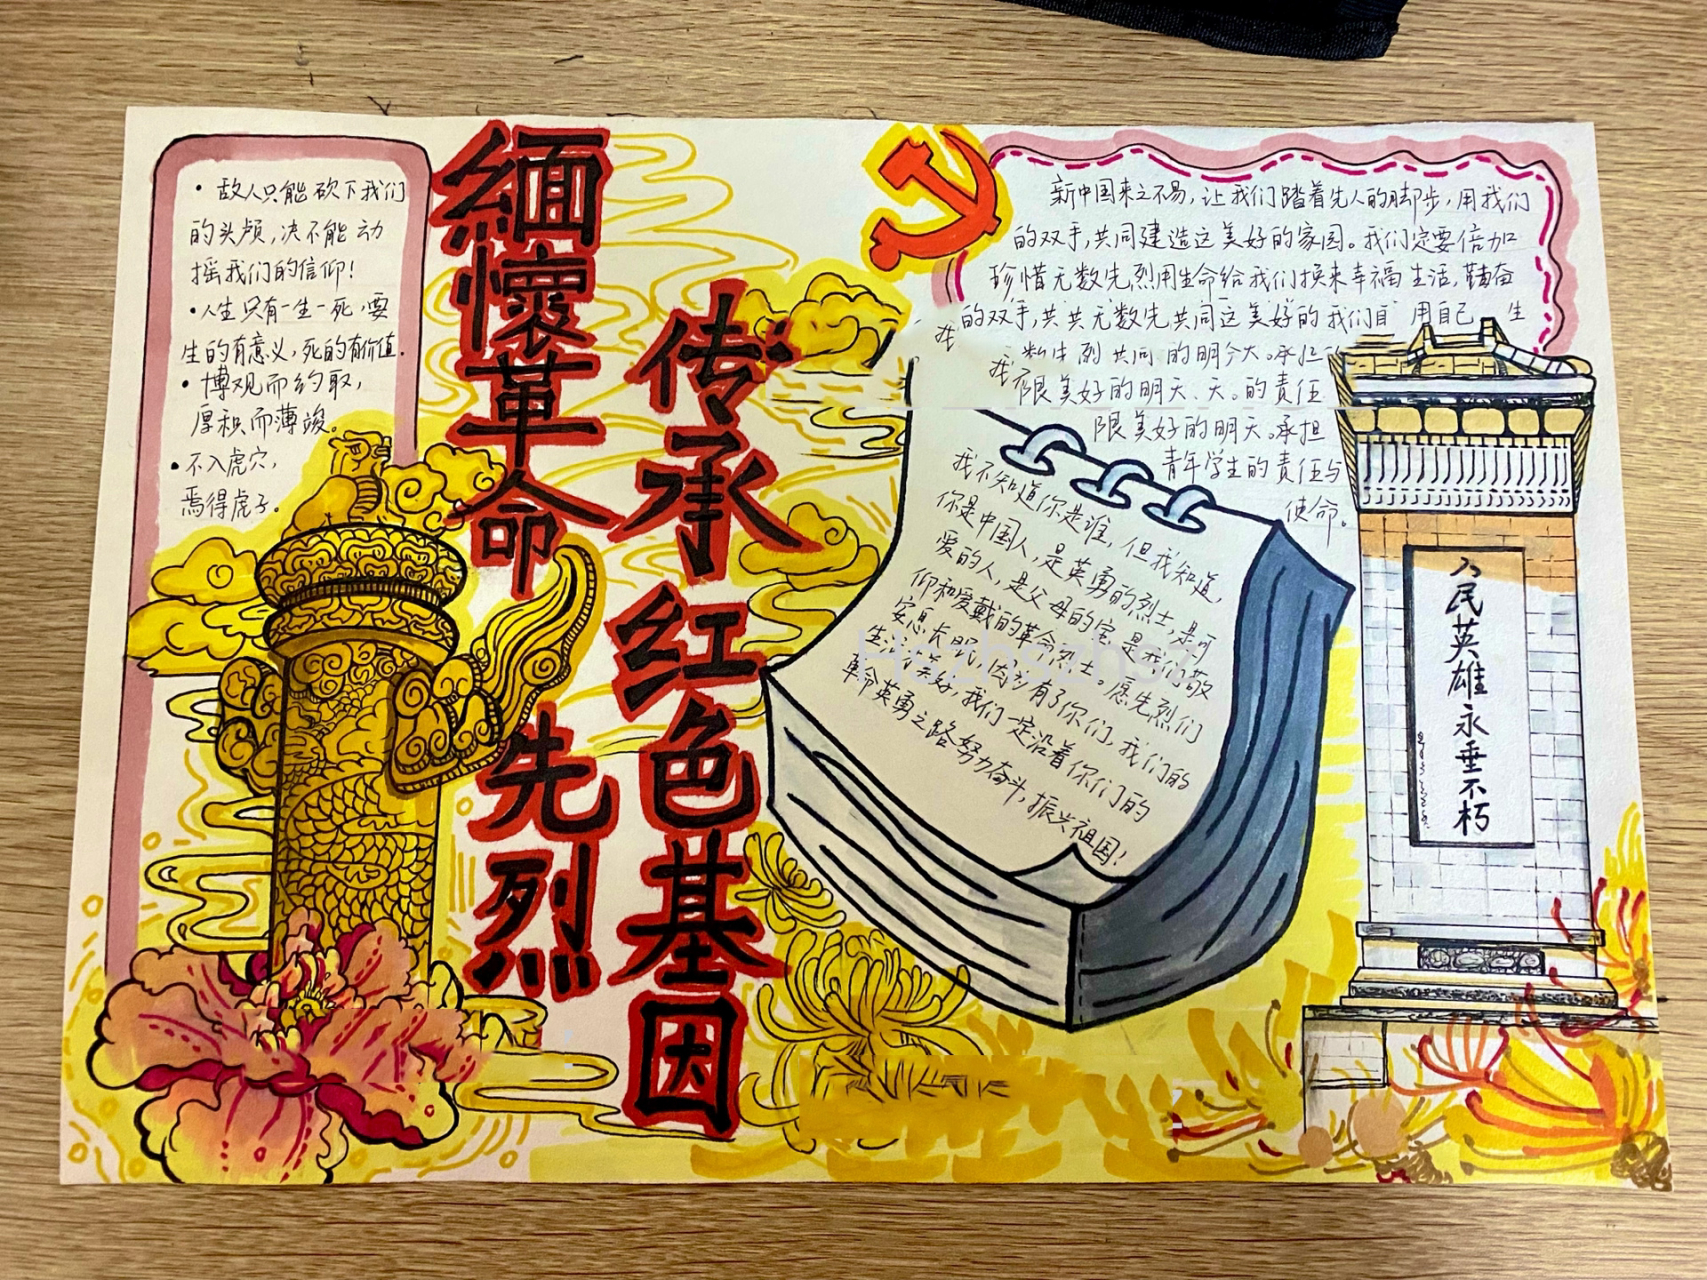 敌人只能砍下我们
的头颅,决不能动
摇我们的信仰!
人生只有一生一死,要
生的有意义,死的有价值.
博观而约取,
厚积而薄
不入虎穴,
焉得虎子。
緬懷革命先烈
传承红色基因
新中国来之不易,让我们踏着先人的脚步,用我们
的双手,共同建造这美好的家园。我们定要倍加
珍惜无数先烈用生命给我们换来幸福生活,勤奋
的双手,共共无数先共同这美好的我们 用自己 生
烈共同的明 。承担
我 限美好的明天、天。的责任
限美好的明天。承担
青年学生的责任与
使命。
我不知道你是谁,但我知道,
你是中国人,是英勇的烈士,是可
爱的人,是父母的宝,是我们敬
仰和爱戴的革命烈士。愿先烈们
安息长眠,因为有了你们,我们的
生活 美好,我们一定沿着你们的
革命英勇之路努力奋斗,振兴祖国!
人民英雄永垂不朽